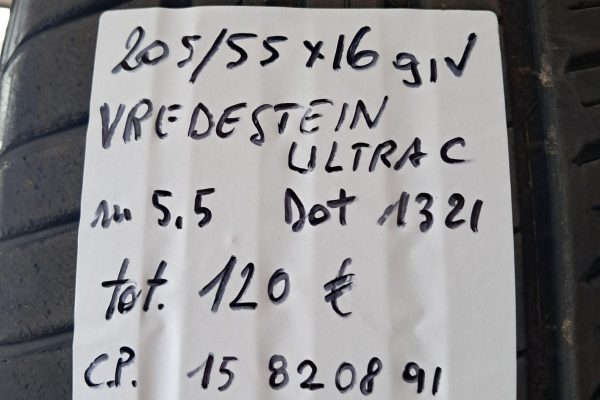 205/55x16 91V
VREDESTEIN
ULTRAC
m 5,5 Dot 1321
tot. 120 €
C.P. 15 82 08 91